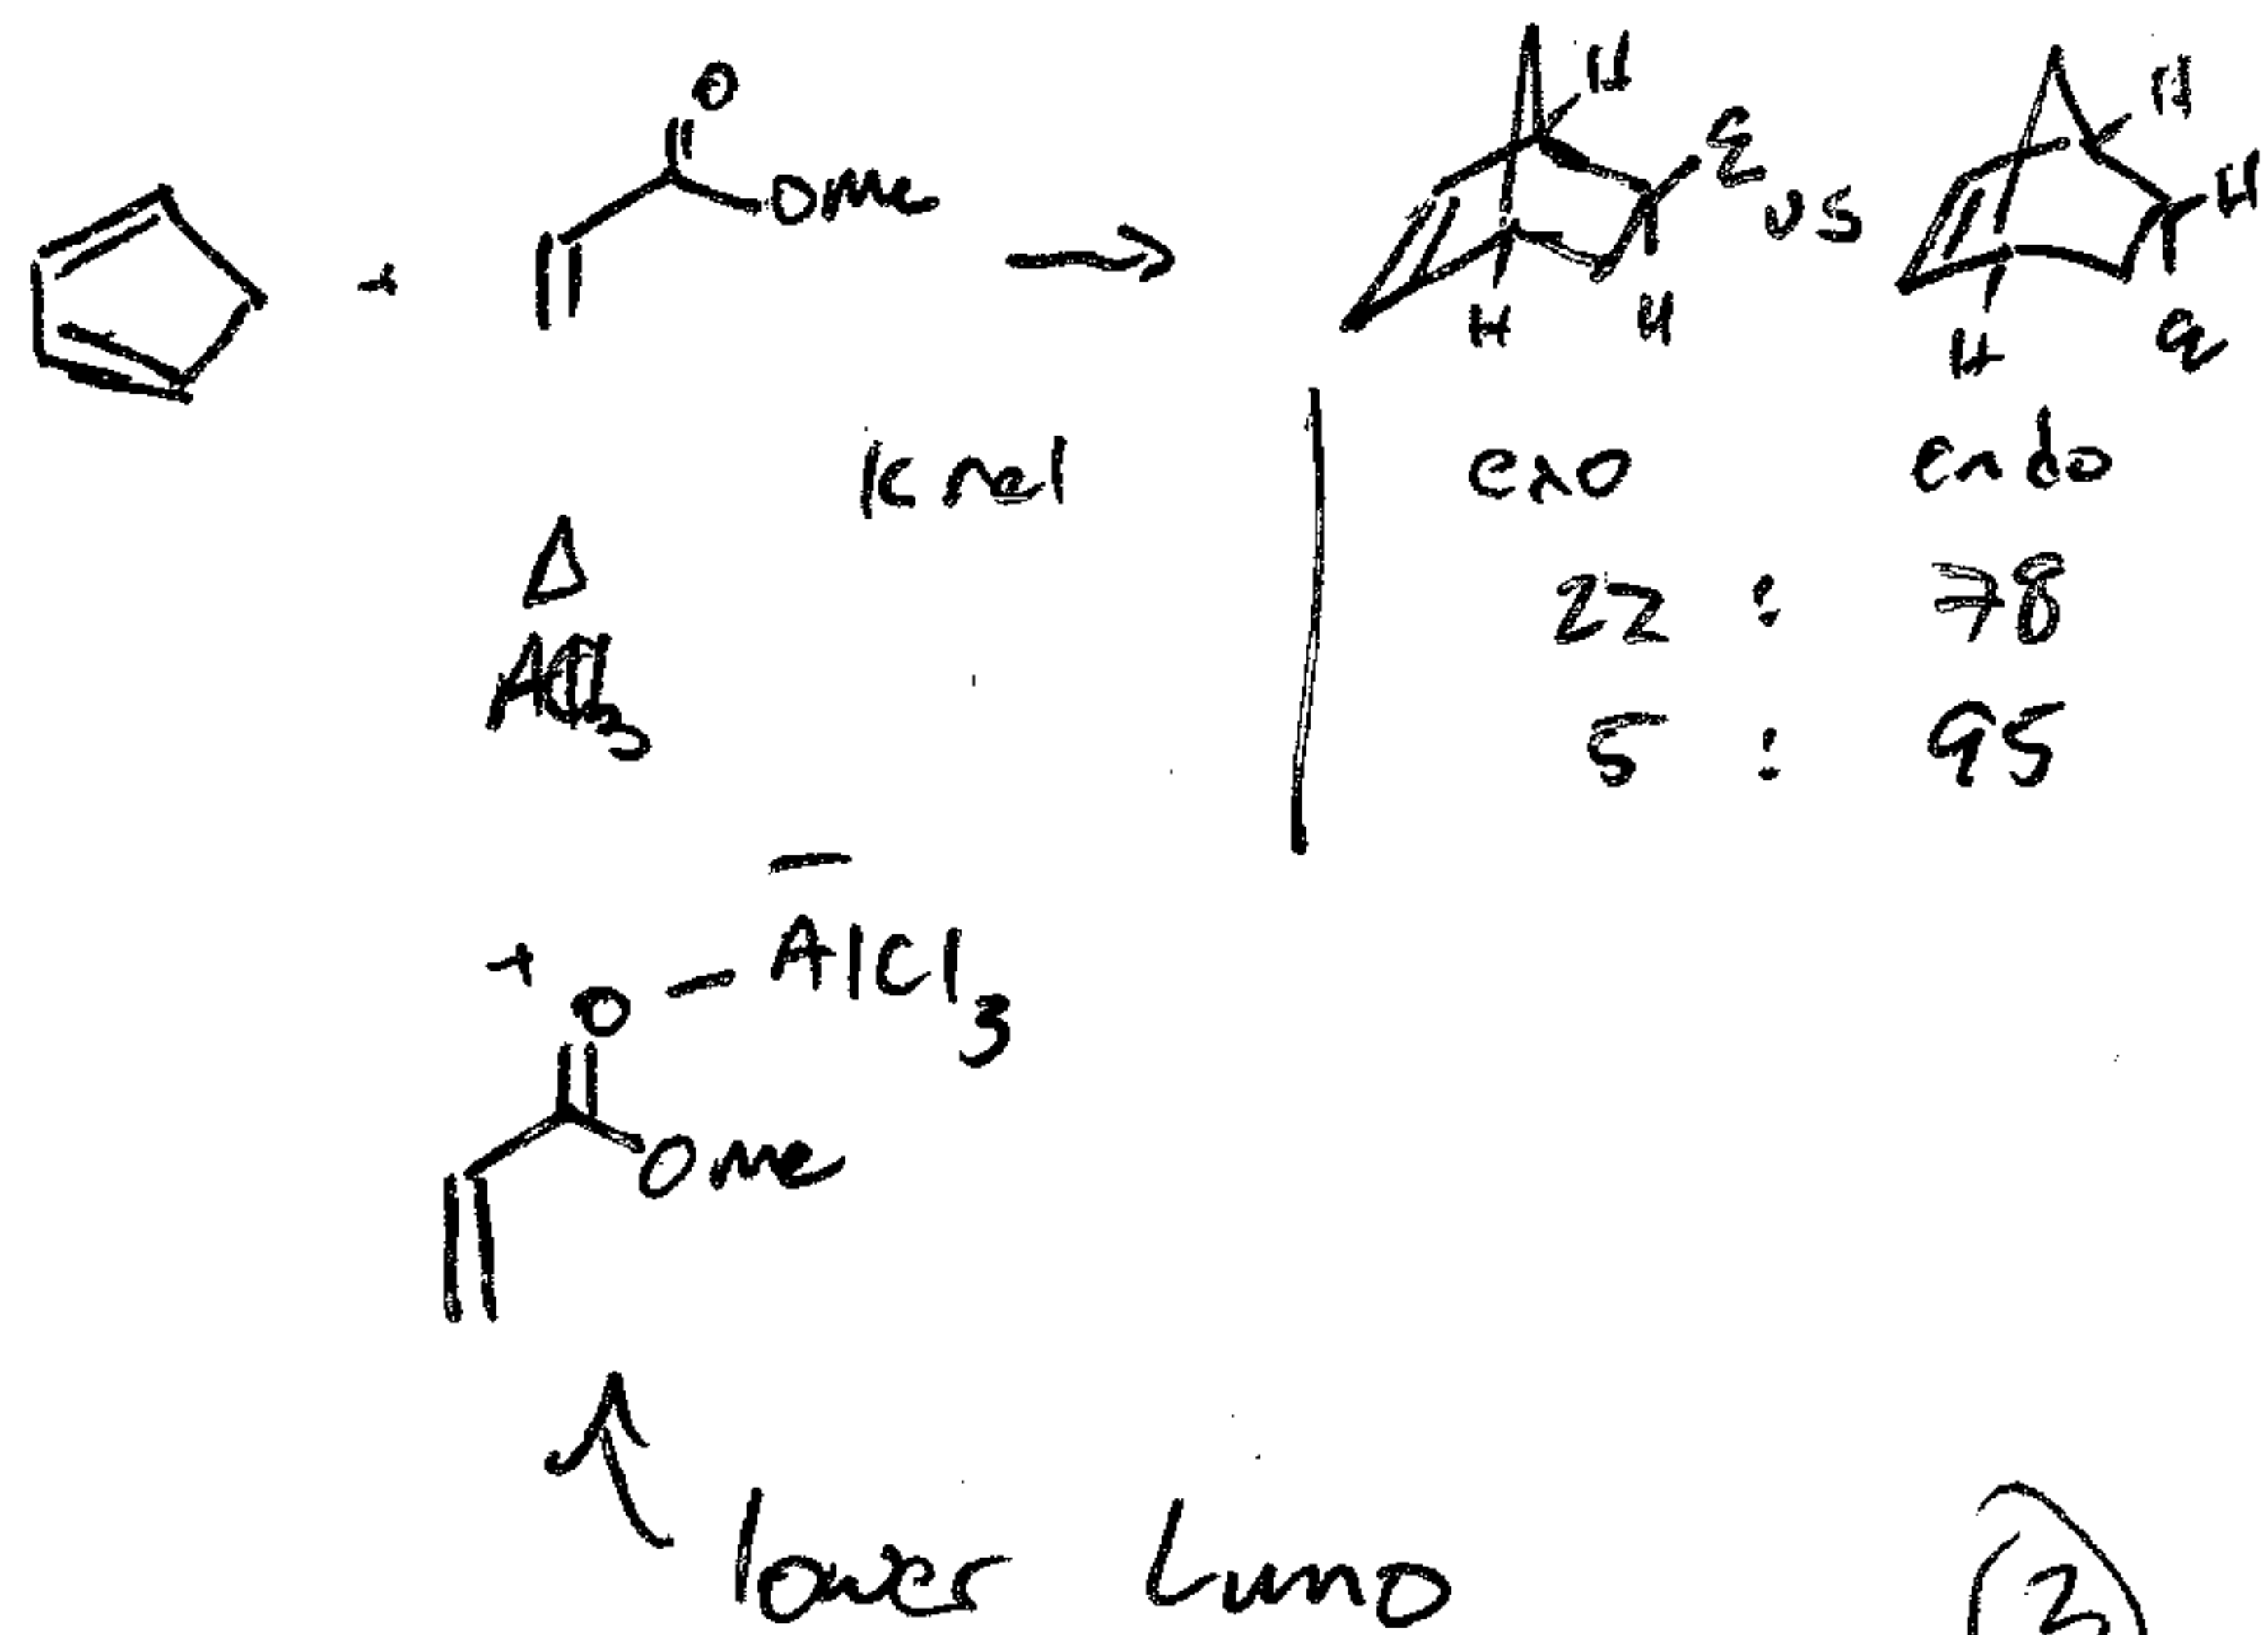 O
OMe
+
→
H
E
vs
H
H
H
H
H
E
k rel
exo endo
Δ 22 : 78
AlCl3 5 : 95
+ −
O – AlCl3
OMe
lower LUMO
2